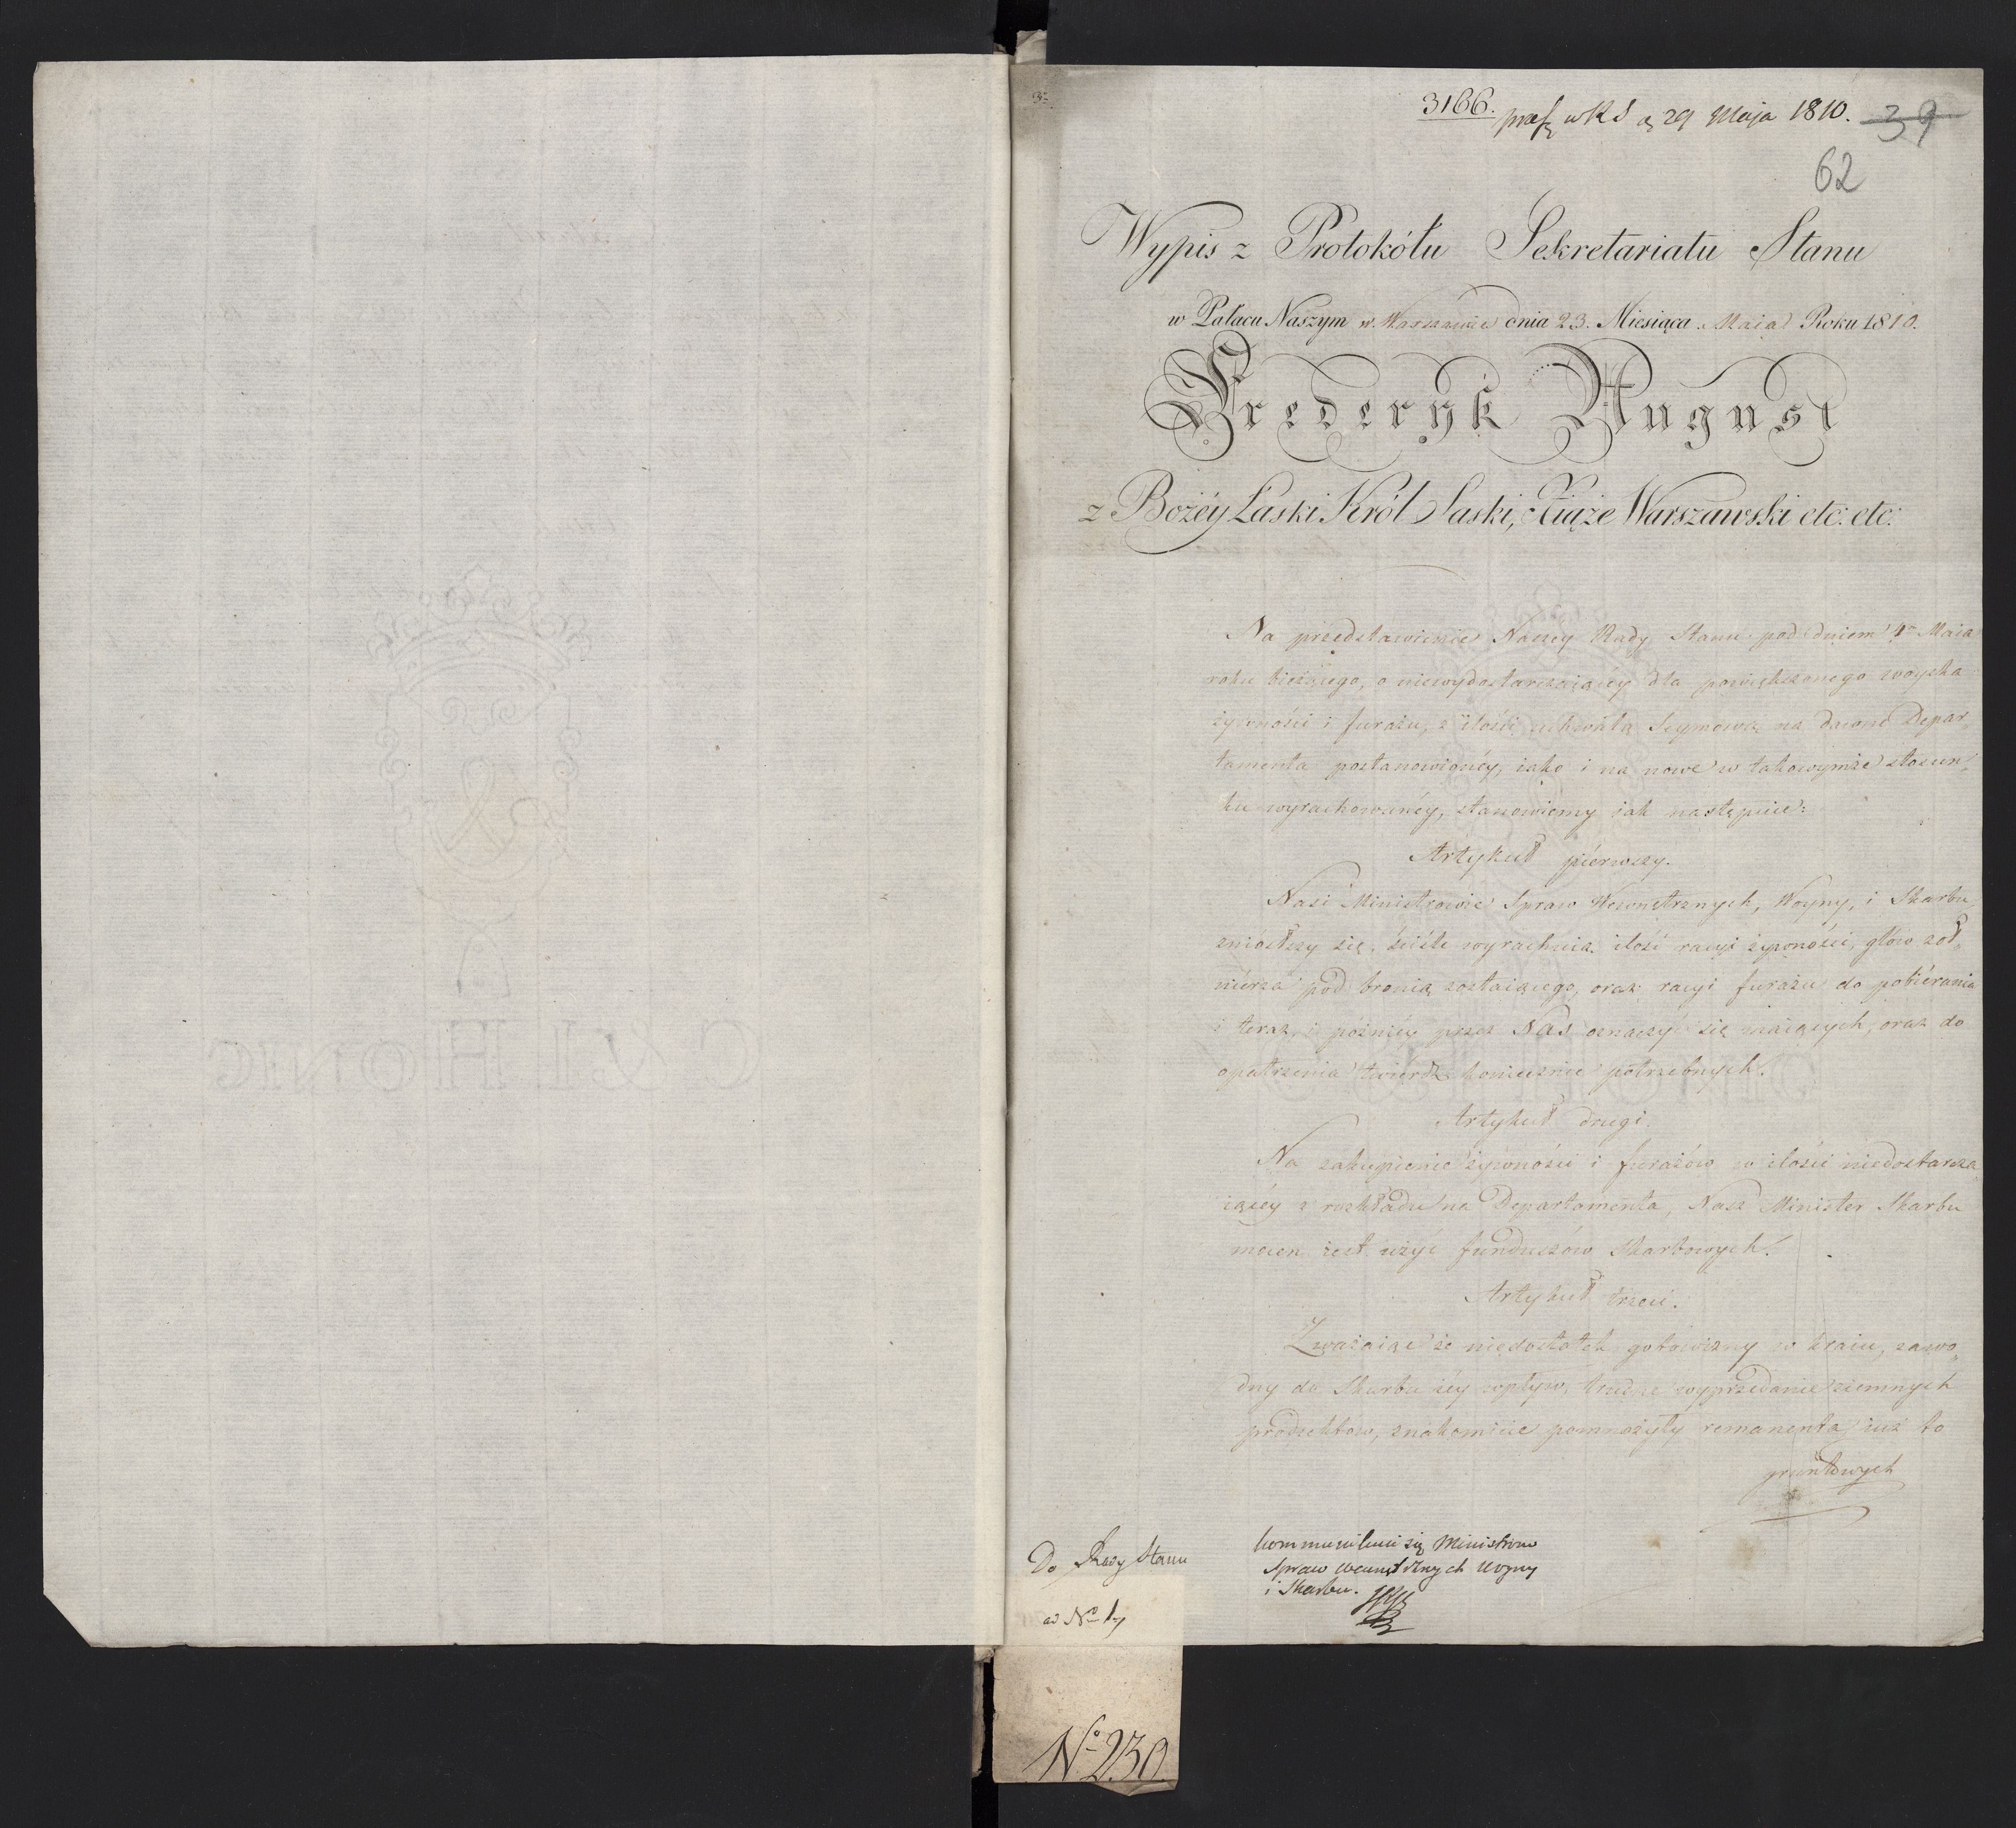 3166. pras w RS d 29 Maja 1810. 39
62
Wypis z Protokółu Sekretariatu Stanu
w Pałacu Naszym w Warszawie dnia 23. Miesiąca Maia Roku 1810.
Frederyk August
z Bożéy Łaski Król Saski, Xiąże Warszawski etc: etc:
Na przedstawienie Naszey Rady Stanu pod dniem 4 Maia
roku bieżącego, o niewydostarczaiącéy dla powiększonego woyska
żywności i furażu, z ilości uchwałą Seymową na dawne Depar„
tamenta postanowionéy, iako i na nowe w takowymże stosun„
ku wyrachowanéy, stanowiemy iak następuie:
Artykuł piérwszy.
Nasi Ministrowie Spraw Wewnętrznych, Woyny, i Skarbu,
zniosłszy się, ściśle wyrachuią ilość racyi żywności, głów żoł„
niérza pod bronią zostaiącego, oraz racyi furażu do pobiérania
i teraz, i późniéy przez Nas oznaczyć się maiących, oraz do
opatrzenia twiérdz koniecznie potrzebnych.
Artykuł drugi.
Na zakupienie żywności i furażów w ilości niedostarcza„
iącéy z rozkładu na Departamenta, Nasz Minister Skarbu
mocen iest użyć funduszów Skarbowych.
Artykuł trzeci.
Zważaiąc że niedostatek gotowizny w kraiu, zawo„
dny do Skarbu iéy wpływ, trudne wyprzedanie ziemnych
produktów, znakomicie pomnożyły remanenta, iuż to
gruntowych
Do Rady Stanu
ad No 17
kommunikuie się Ministrom
Spraw Wewnętrznych Woyny
i Skarbu.
No 230.
C & I HONIG